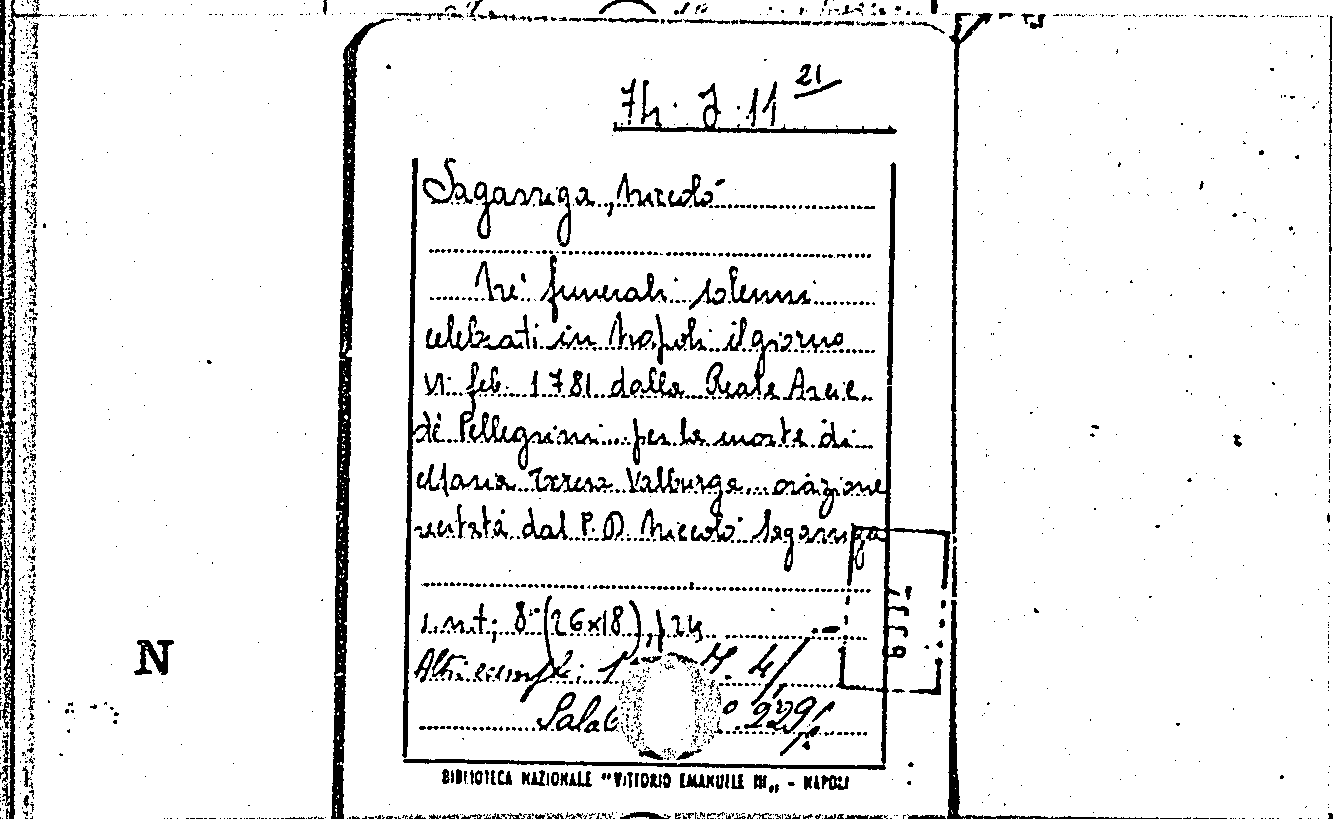 7h. J. 11 21
Sagarriga, Niccolò
Ne' funerali solenni
celebrati in Napoli il giorno
VI feb. 1781 dalla Reale Arcic.
de' Pellegrini per la morte di
Maria Teresa Valburga... orazione
recitata dal P. D. Niccolò Sagarriga
s.n.t; 8° (26x18), p 24
Altri esempl:
229
BIBLIOTECA NAZIONALE "VITTORIO EMANUELE III„ - NAPOLI
N